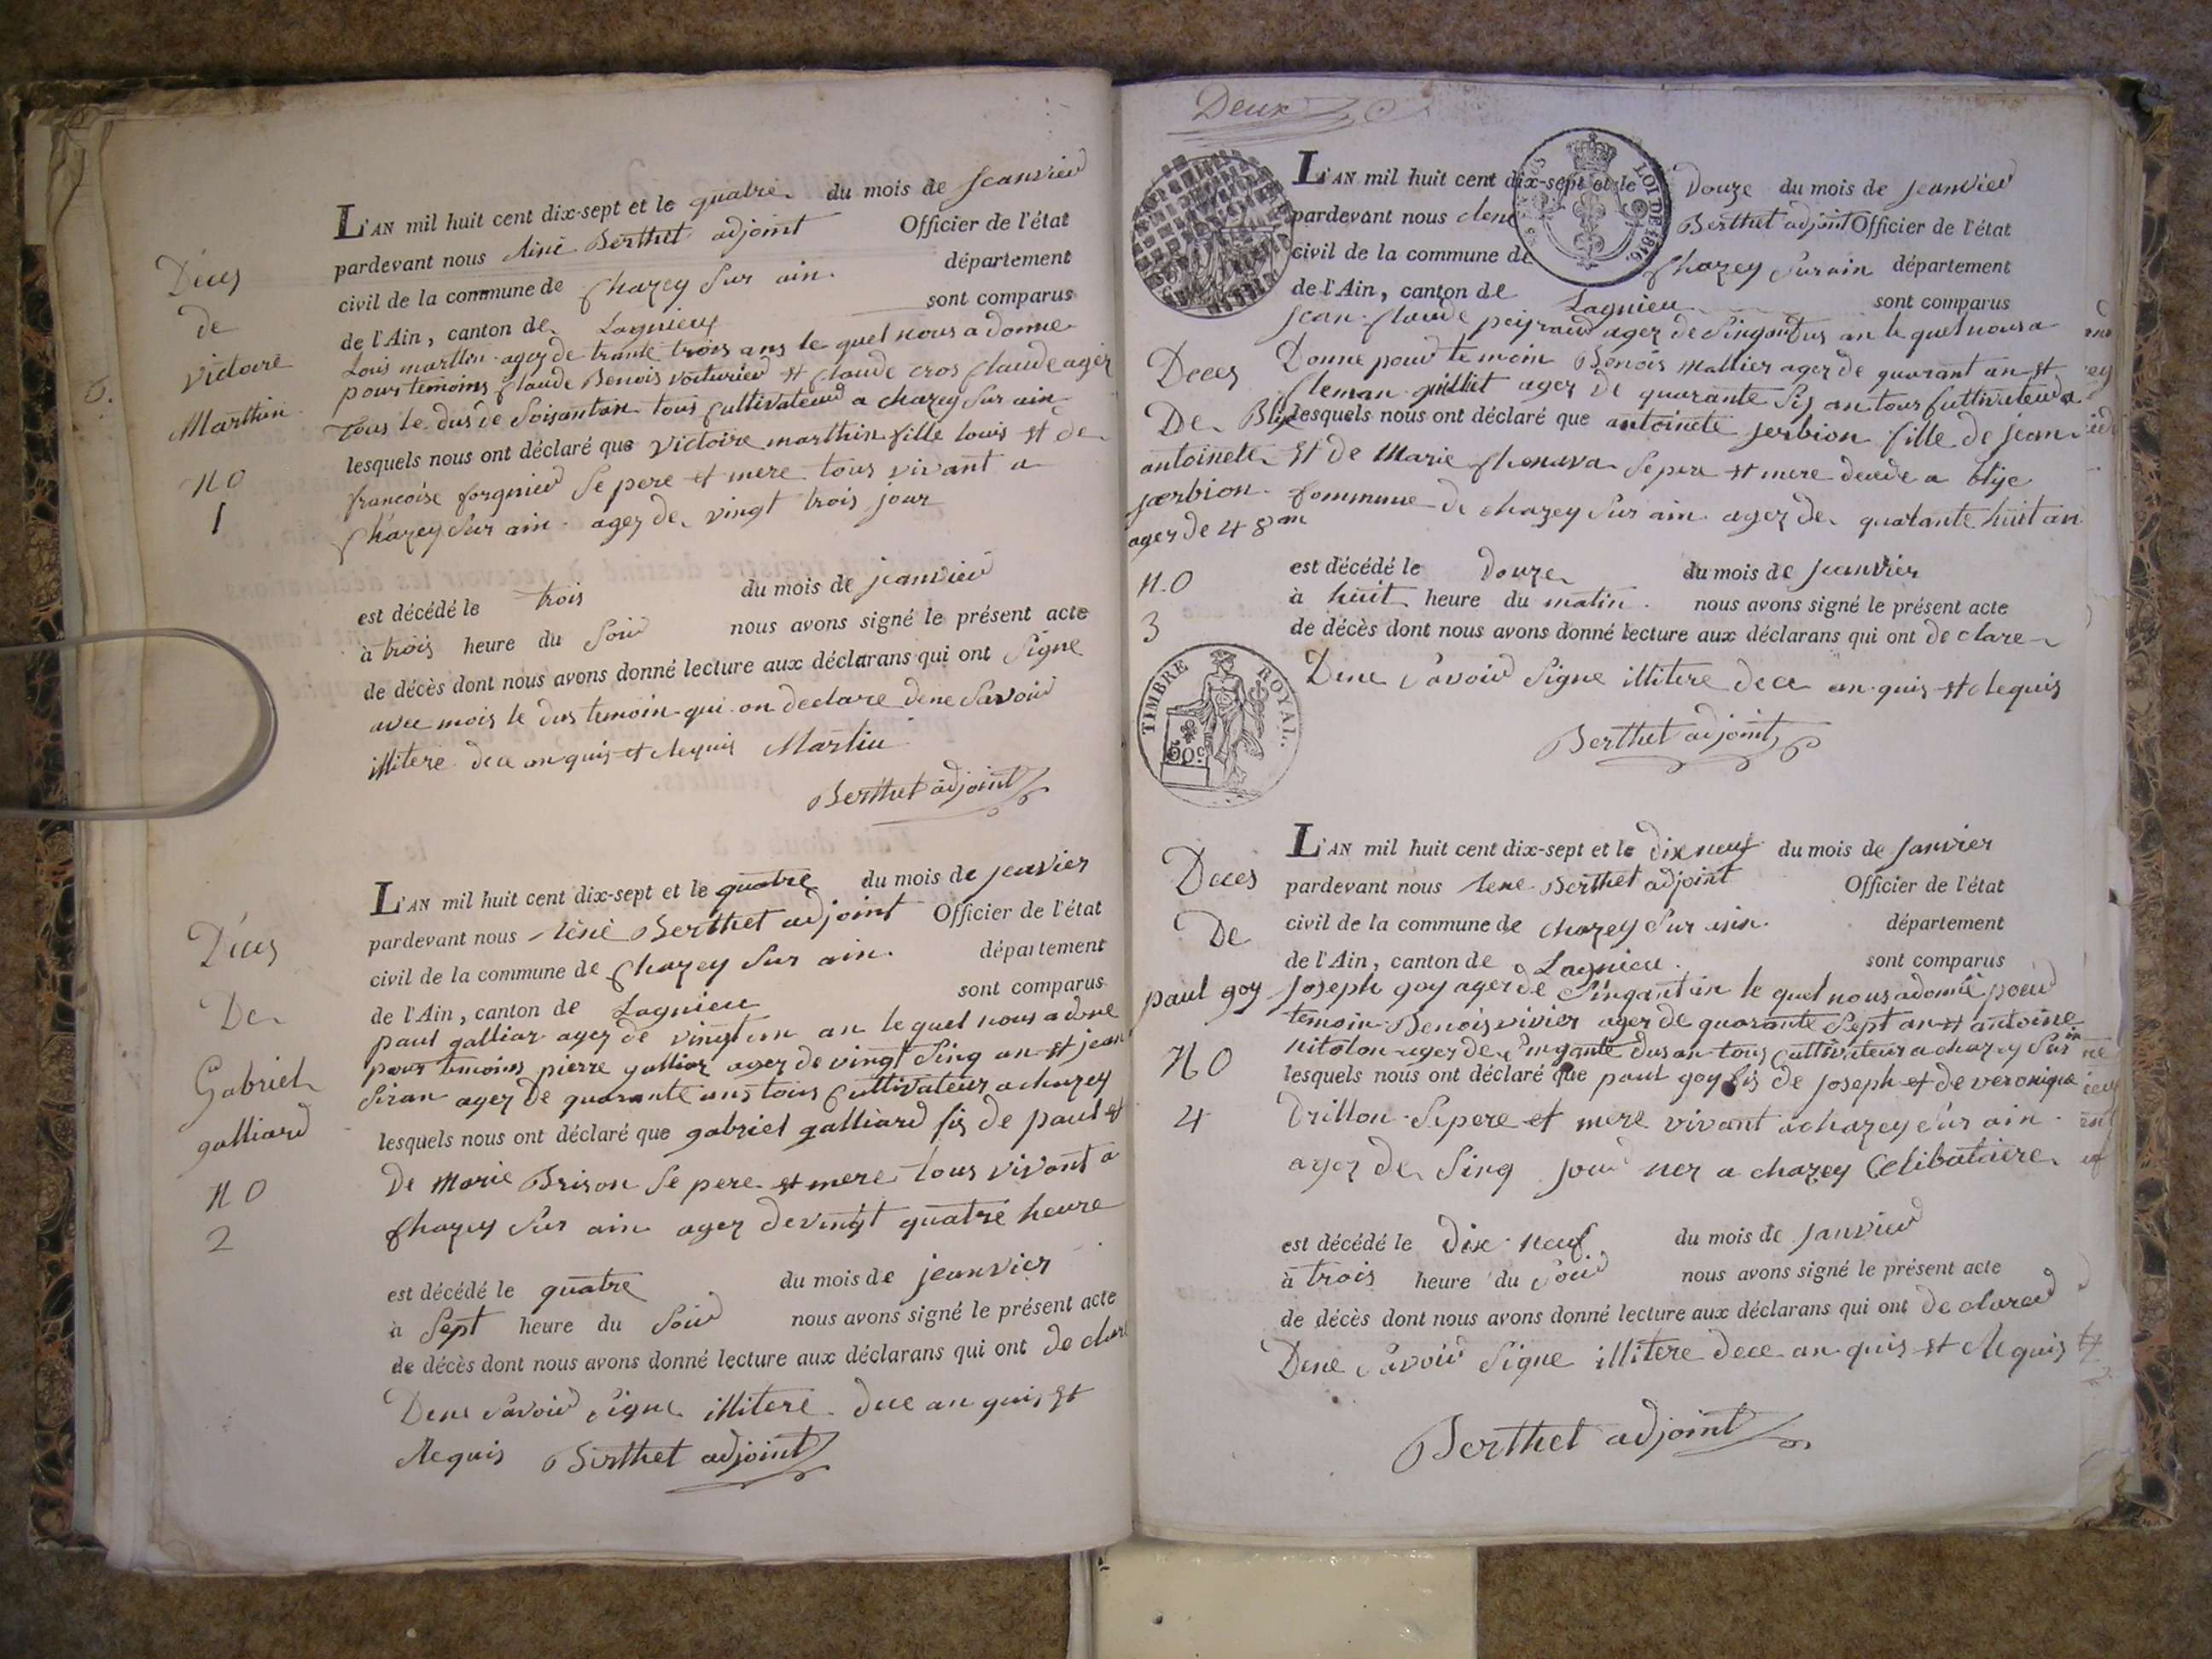 Déces
de
victoire
Marthin
N O
1
L'AN mil huit cent dix-sept et le quatre du mois de Jeanvier
pardevant nous Berthet adjoint Officier de l'état
civil de la commune de Chazey Sur ain département
de l'Ain, canton de Lagnieu sont comparus
Louis marthin agez de trante trois ans le quel nous a donne
pour temoins Claude Benois voiturier et Claude cros Claude agez
tous le dus de Soisantan tous Cultivateur a chazey Sur ain
lesquels nous ont déclaré que victoire marthin fille louis et de
francoise forgnier Se pere et mere tous vivant a
Chazey Sur ain agez de vingt trois jour
est décédé le trois du mois de jeanvier
à trois heure du Soir nous avons signé le présent acte
de décès dont nous avons donné lecture aux déclarans qui ont Signe
avec mois le dus temoin qui on declare dene Savoir
illitere dece an quis et Requis Martin
Berthet adjoint
Déces
De
Gabriel
galliard
N O
2
L'AN mil huit cent dix-sept et le quatre du mois de jeavier
pardevant nous Réné Berthet adjoint Officier de l'état
civil de la commune de Chazey Sur ain département
de l'Ain, canton de Lagnieu sont comparus
paul galliar agez de vingt un an le quel nous a done
pour temoins pierre galliar agez de vingt Sinq an et jean
Siran agez de quarante ans tous Cultivateur a chazey
lesquels nous ont déclaré que gabriel galliard fis de paul et
De Marie Brison Se pere et mere tous vivant a
Chazey Sur ain agez de vingt quatre heure
est décédé le quatre du mois de jeanvier
à Sept heure du Soir nous avons signé le présent acte
de décès dont nous avons donné lecture aux déclarans qui ont de clare
Dene Savoir Signe illitere dece an quis et
Requis Berthet adjoint
Deux
LOI DE 1816
L'AN mil huit cent dix-sept et le Douze du mois de jeanvier
pardevant nous Rene Berthet adjoint Officier de l'état
civil de la commune de Chazey Sur ain département
de l'Ain, canton de Lagnieu sont comparus
Jean Claude peyraud agez de Singantus an le quel nous a
Donne pour temoin Benois Mallier agez de quarant an et
Cleman guilliet agez de quarante Sis an tous Cultivateur a
Blije lesquels nous ont déclaré que antoinete jerbion fille de jean
Et de Marie Chenava Se pere et mere decede a blije
Commune de chazey Sur ain agez de quarante huit an
Deces
De
antoinete
jerbion
agez de 48 an
N.O
3
TIMBRE ROYAL.
50c
est décédé le Douze du mois de Jeanvier
à huit heure du matin nous avons signé le présent acte
de décès dont nous avons donné lecture aux déclarans qui ont de clare
Dene Savoir Signe illitere dece an quis et Requis
Berthet adjoint
Deces
De
paul goy
N O
4
L'AN mil huit cent dix-sept et le dix neuf du mois de Janvier
pardevant nous Rene Berthet adjoint Officier de l'état
civil de la commune de Chazey Sur ain département
de l'Ain, canton de Lagnieu sont comparus
Joseph goy agez de Singant an le quel nous a donné pour
temoin Benois vivier agez de quarante Sept an et antoine
nitolon agez de Singante dus an tous Cultivateur a chazey Sur in
lesquels nous ont déclaré que paul goy fis de Joseph et de veronique
Drillon Se pere et mere vivant a chazey Sur ain
agez de Sinq jour nez a chazey Celibataire
est décédé le Dix neuf du mois de Janvier
à trois heure du Soir nous avons signé le présent acte
de décès dont nous avons donné lecture aux déclarans qui ont de clarer
Dene Savoir Signe illitere dece an quis et Requis
Berthet adjoint